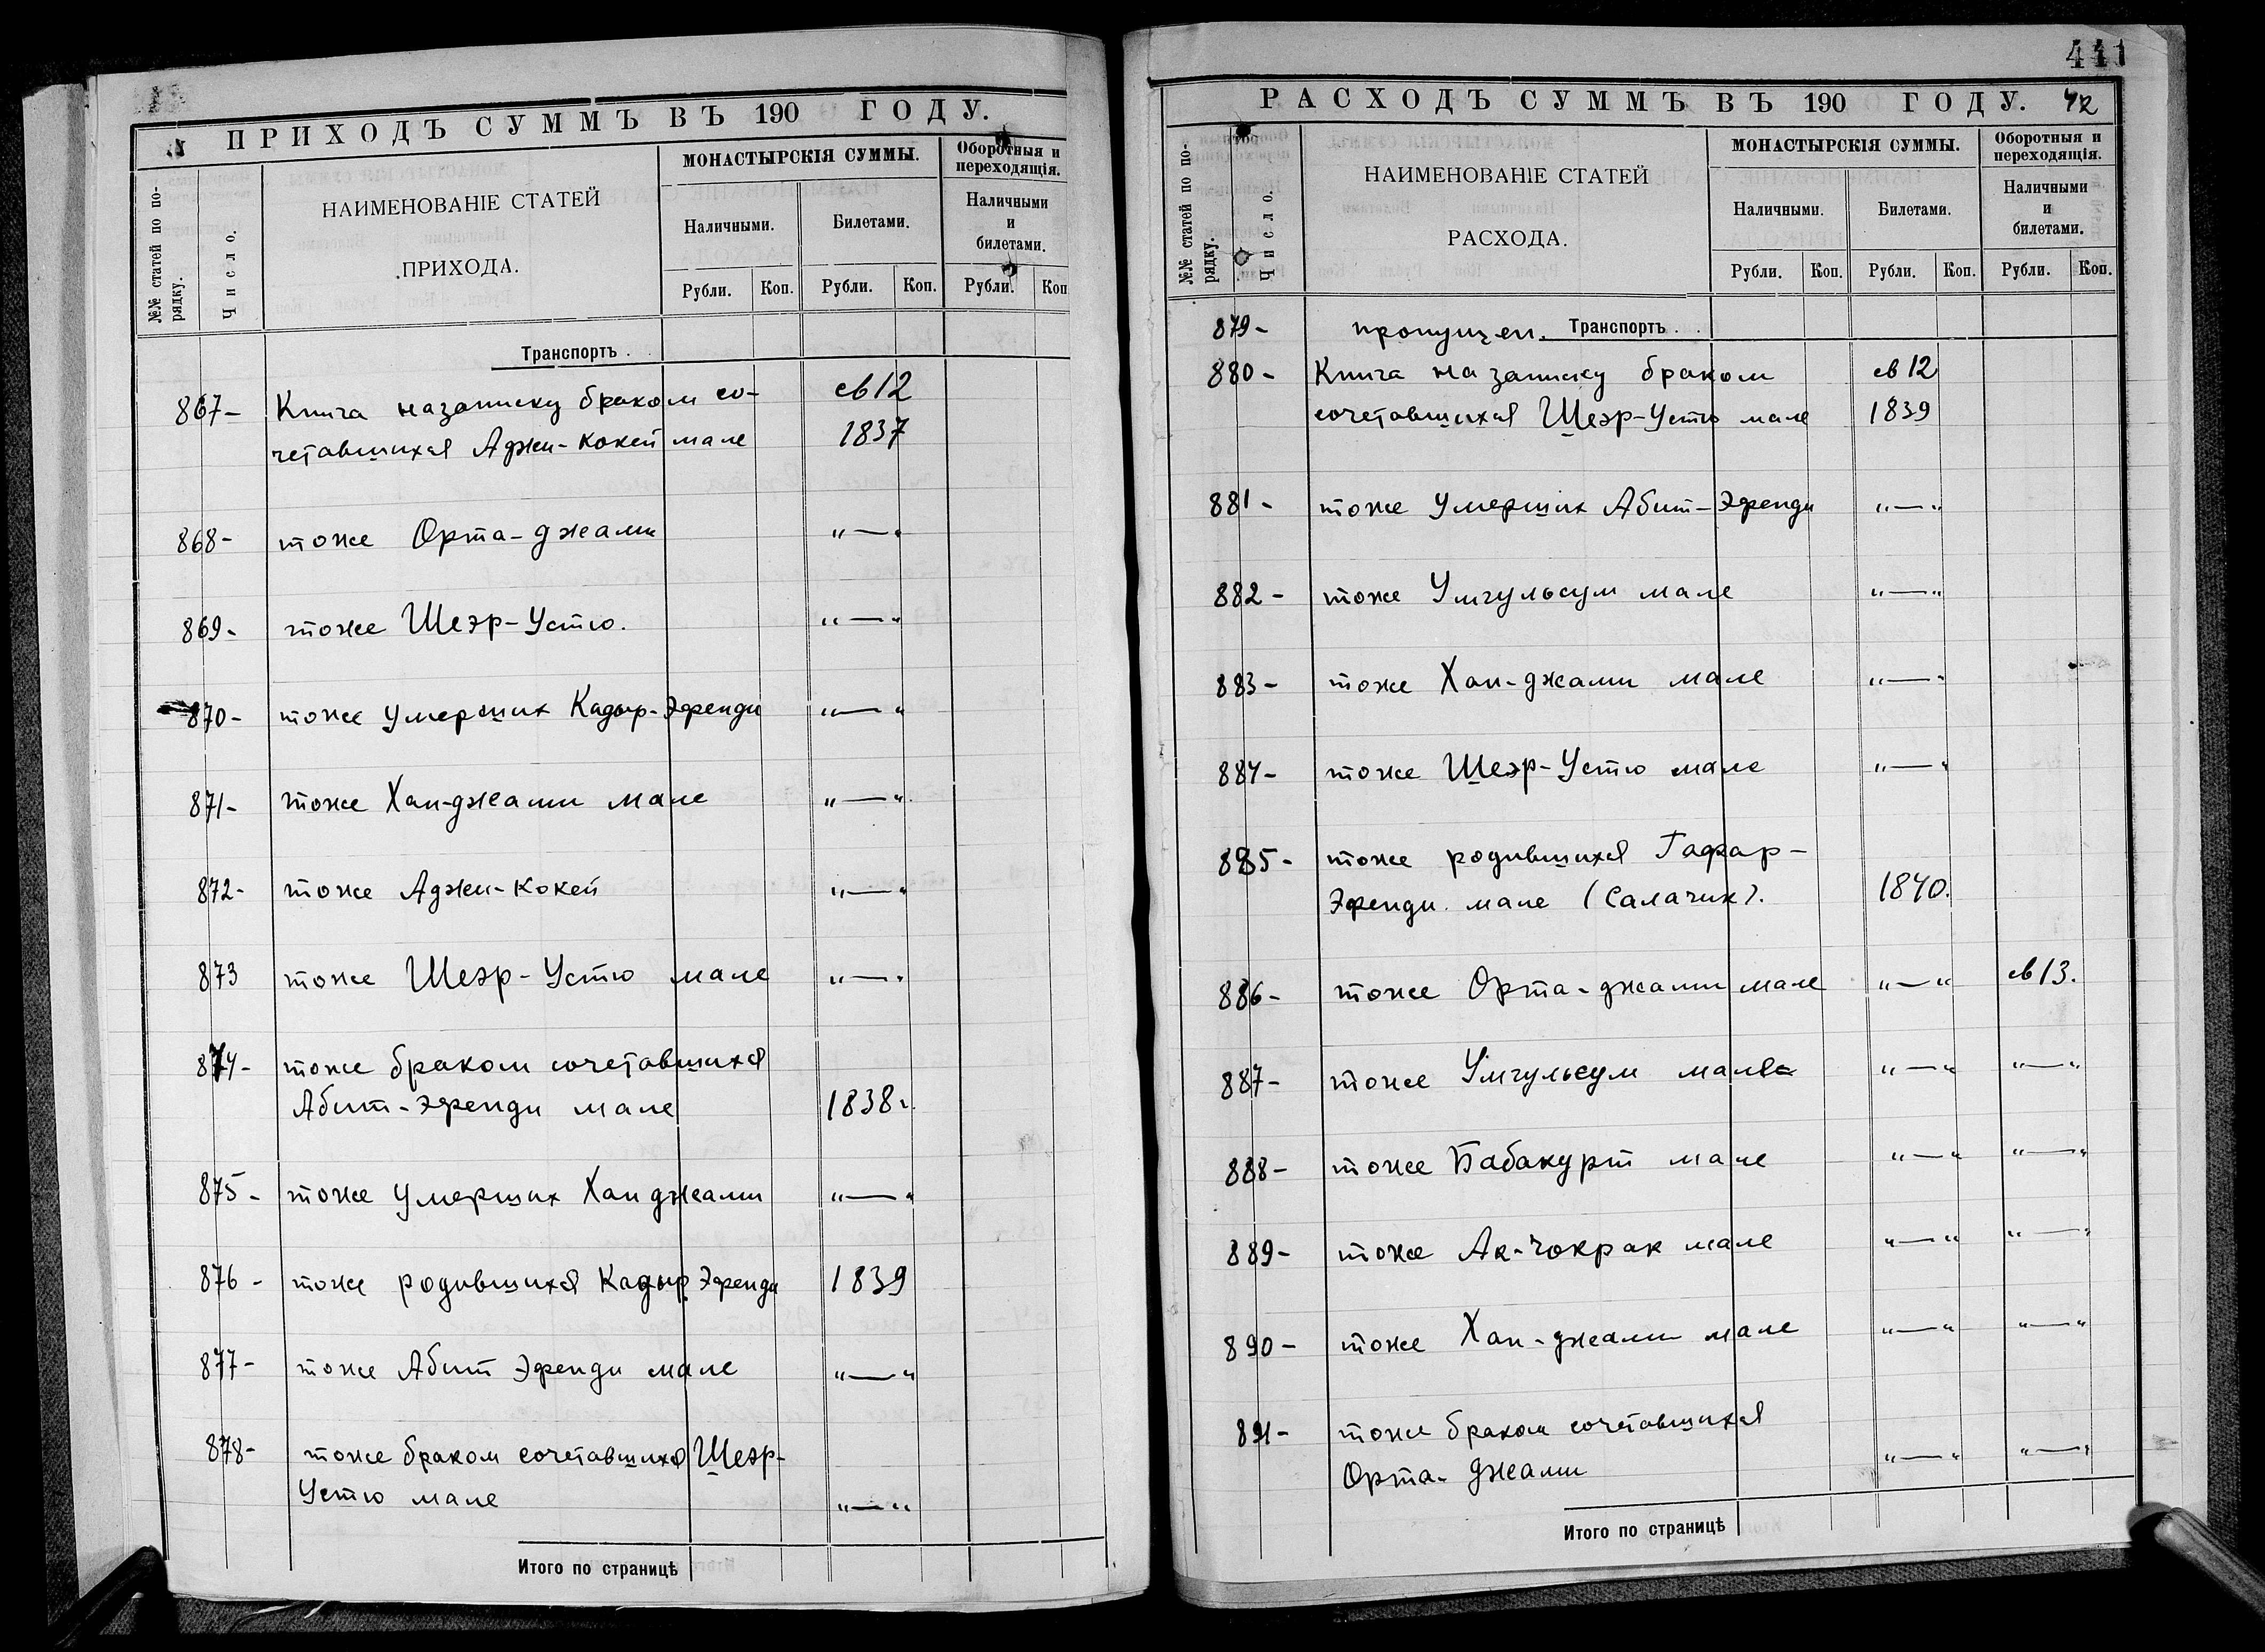 ПРИХОДЪ СУММЪ ВЪ 190 ГОДУ.
№№ статей по порядку.
Число.
НАИМЕНОВАНІЕ СТАТЕЙ
ПРИХОДА.
МОНАСТЫРСКІЯ СУММЫ.
Оборотныя и
переходящія.
Наличными.
Билетами.
Наличными
и
билетами.
Рубли. Коп. Рубли. Коп. Рубли. Коп
Транспортъ .
867- Книга на записку браком со- св 12
четавшихся Аджи-Кокей мале 1837
868- тоже Орта-джами "—"
869- тоже Шеэр-Устю. "—"
870- тоже умерших Кадыр-Эфенди "—"
871- тоже Хан-джами мале "—"
872- тоже Аджи-Кокей "—"
873 тоже Шеэр-Устю мале "—"
874- тоже браком сочетавшихся
Абит-эфенди мале 1838г.
875- тоже умерших Хан джами "—"
876- тоже родившихся Кадыр Эфенди 1839
877- тоже Абит Эфенди мале "—"
878- тоже браком сочетавшихся Шеэр-
Устю мале "—"
Итого по страницѣ
441
РАСХОДЪ СУММЪ ВЪ 190 ГОДУ. 42
№№ статей по порядку.
Число.
НАИМЕНОВАНІЕ СТАТЕЙ
РАСХОДА.
МОНАСТЫРСКІЯ СУММЫ.
Оборотныя и
переходящія.
Наличными.
Билетами.
Наличными
и
билетами.
Рубли. Коп. Рубли. Коп. Рубли. Коп.
879- пропущен. Транспортъ . .
880- Книга на записку браком св 12
сочетавшихся Шеэр-Устю мале 1839
881- тоже умерших Абит-Эфенди "—"
882- тоже Умгульсум мале "—"
883- тоже Хан-джами мале "—"
884- тоже Шеэр-Устю мале "—"
885- тоже родившихся Гафар-
Эфенди мале (Салачик). 1840.
886- тоже Орта-джами мале "—" св 13.
887- тоже Умгульсум мале "—" "—"
888- тоже Бабакурт мале "—" "—"
889- тоже Ак-Чокрак мале "—" "—"
890- тоже Хан-джами мале "—" "—"
891- тоже браком сочетавшихся
Орта-джами "—" "—"
Итого по страницѣ